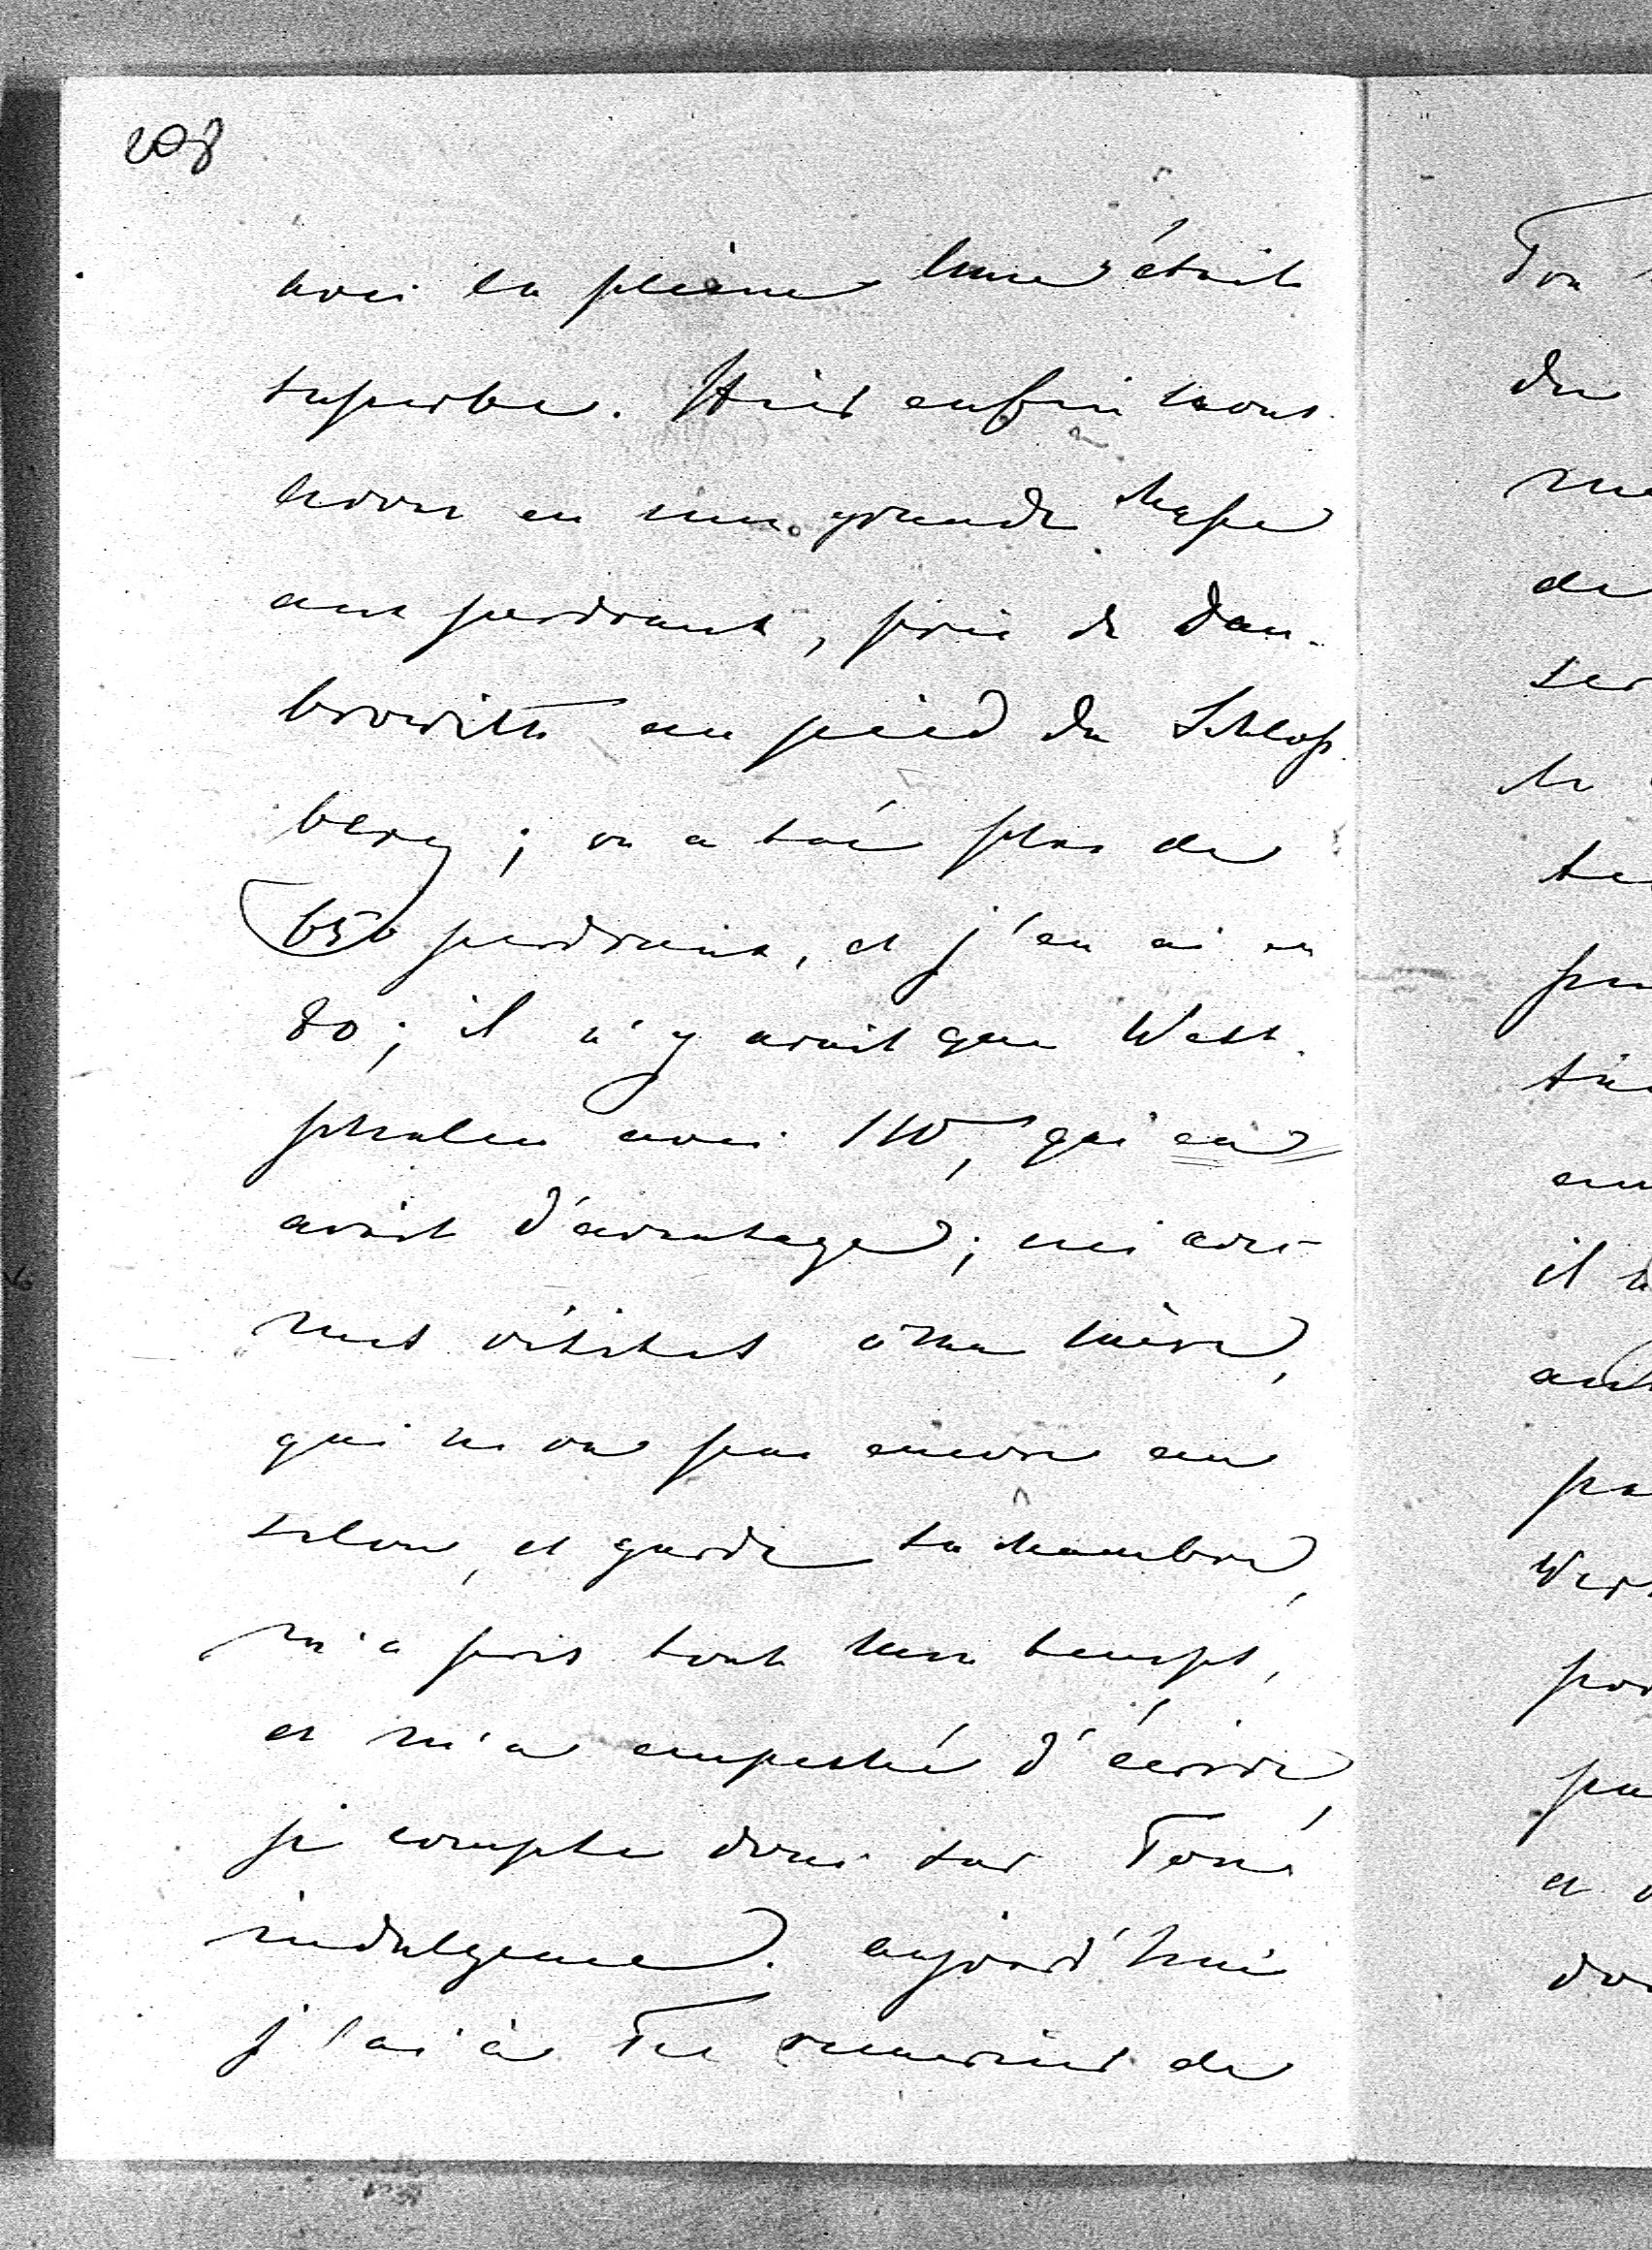 208
avec la pleine lune était
superbe. Hier enfin nous
avons eu une grande chasse
aux perdraux, près de Dau-
browitz au pied du Schloß-
berg; on a tué plus de
650 perdraux, et j'en ai eu
80; il n'y avait que West-
phalen avec 110, qui en
avait d'avantage;
visites à ma mère,
qui ne va pas encore au
salon, et garde sa chambre,
m'a pris tout mon temps,
et m'a empeché d'écrire,
je compte donc sur Ton
indulgence. aujourd'hui
j'ai à Te remercier de
Ton
du
de
il
pa
et